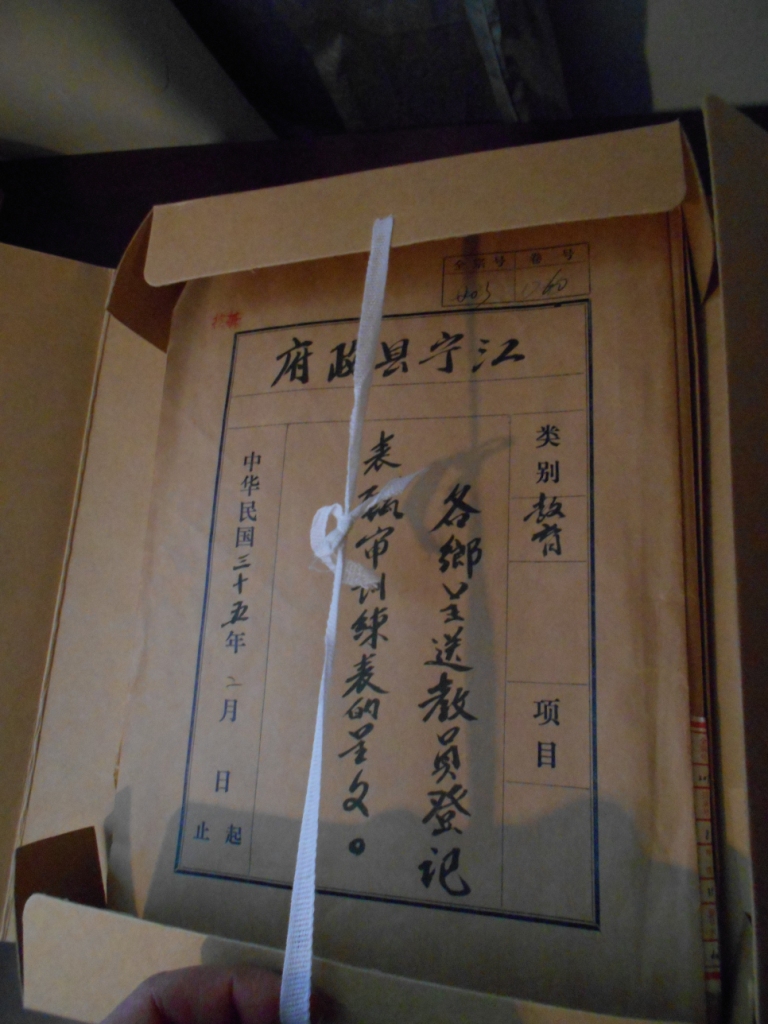 全宗号 卷号
江宁县政府
类别 教育
项目
各鄉呈送教員登记
表 审训練表的呈文。
中华民国三十五年二月 日
起
止